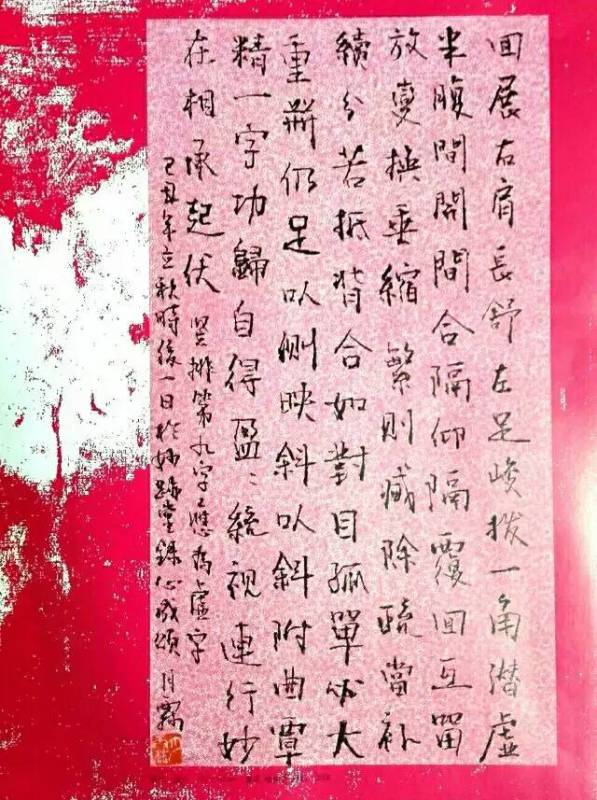 回展右肩長舒左足峻拔一角潛虛
半腹間開間合隔仰隔覆回互留
放變換垂縮繁則減除疏當補
續分若抵背合如對目孤單必大
重并仍足以側映斜以斜附曲覃
精一字功歸自得盈〻統視連行妙
在相承起伏 豎排第九字〻應為虛字
己丑年立秋時後一日於妙跡堂錄心成頌 月